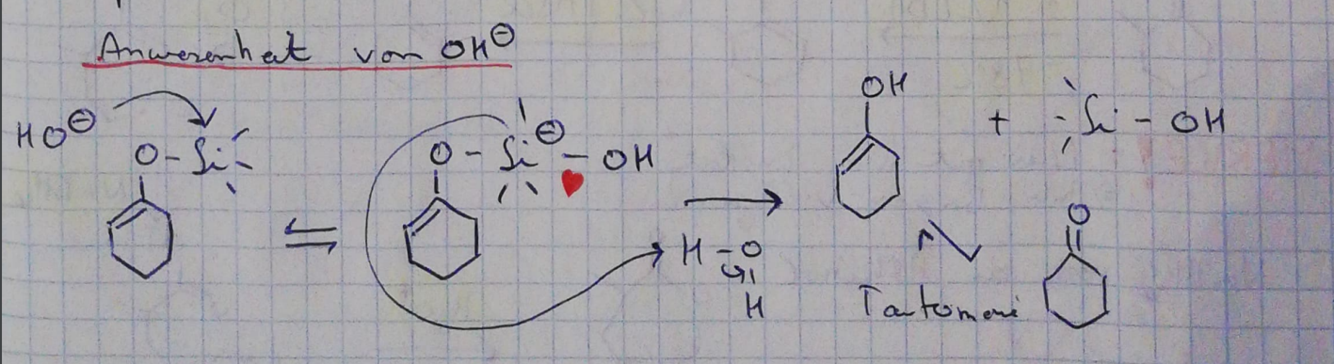 Anwesenheit von OH⊖
HO⊖
O-Si
O-Si⊖-OH
H-O
H
OH
+ Si-OH
O
Tautomerie